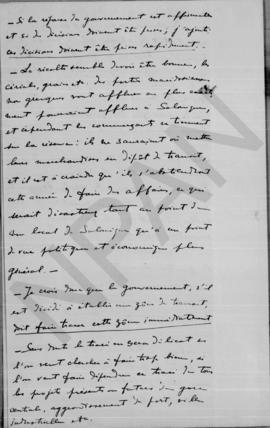 – Si la réponse du gouvernement est affirmative
et si des décisions doivent être prises, j'ajoute
ces décisions doivent être prises rapidement. –
– La récolte semble devoir être bonne, les
céréales, grains etc. des parties macédoniennes
ou grecques vont affluer en plus
ment pourraient affluer à Salonique,
et cependant les commerçants se tiennent
sur la réserve : ils ne sauraient où mettre
leurs marchandises en dépôt de transit,
et il est à craindre qu'ils s'abstiendront
cette année de faire des affaires, ce qui
serait désastreux tant au point de
vue local de Salonique qu'au point
de vue politique et économique plus
général. –
– Je crois donc que le gouvernement, s'il
est décidé à établir une zône de transit,
doit faire tracer cette zône immédiatement
– Sans doute le tracé en sera délicat si
l'on veut chercher à faire trop bien, si
l'on veut faire dépendre ce tracé de tous
les projets présents ou futurs de gare
centrale, agrandissement de port, ville
industrielle etc.